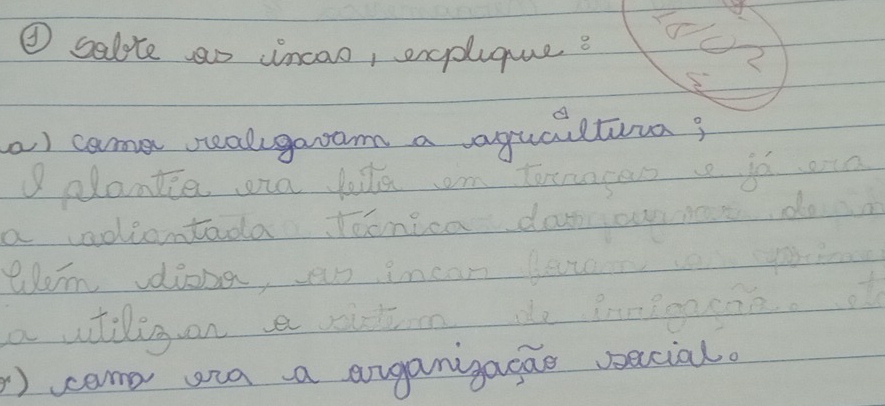 ① Sobre os incas, explique:
a) como realizavam a agricultura;
O plantio era feito em terraços e já era
a adiantada técnica
Além disso, os incas foram os
a utilizar o sistem de irrigação.
) como era a organização social.